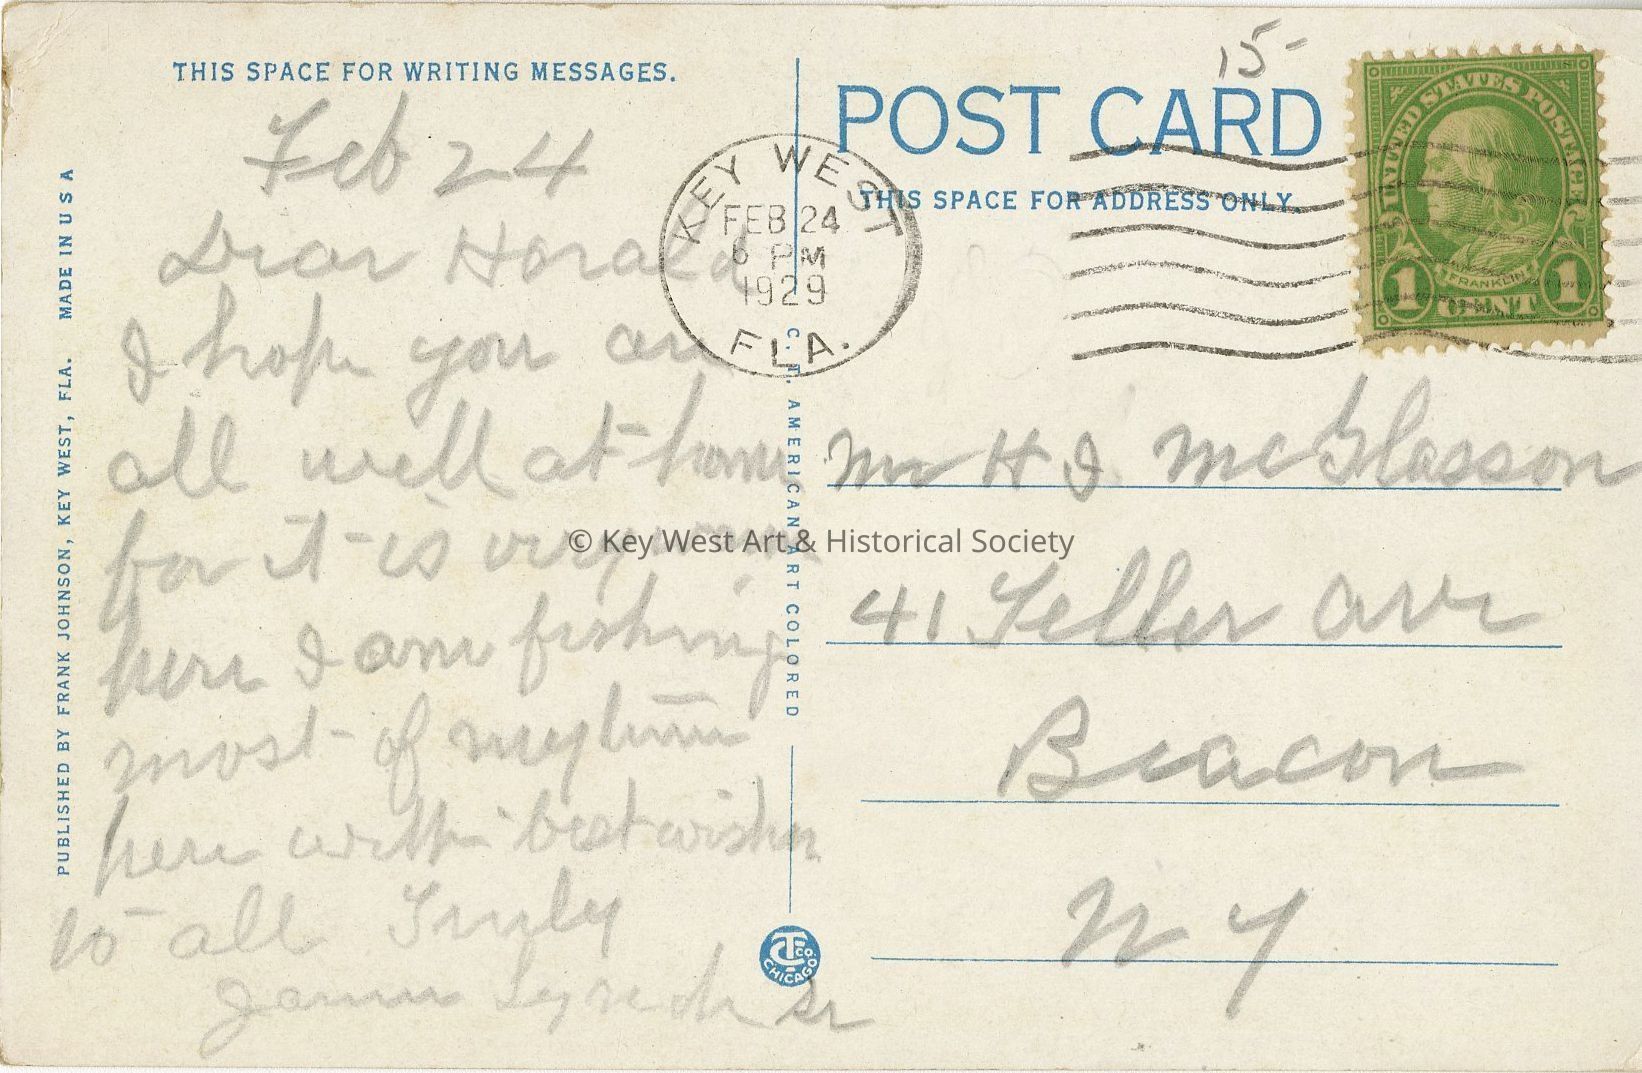 THIS SPACE FOR WRITING MESSAGES.
Feb 24
Dear Harald
I hope you are
all well at home
for it is very
here I am fishing
most of my time
here with best wishes
to all Truly
James Lynch Sr
PUBLISHED BY FRANK JOHNSON, KEY WEST, FLA. MADE IN U S A
C. T. AMERICAN ART COLORED
CT CO. CHICAGO
15-
POST CARD
THIS SPACE FOR ADDRESS ONLY.
KEY WEST
FEB 24
6 PM
1929
FLA.
UNITED STATES POSTAGE
FRANKLIN
1 CENT 1
Mr H I McGlasson
41 Teller Ave
Beacon
N Y
© Key West Art & Historical Society